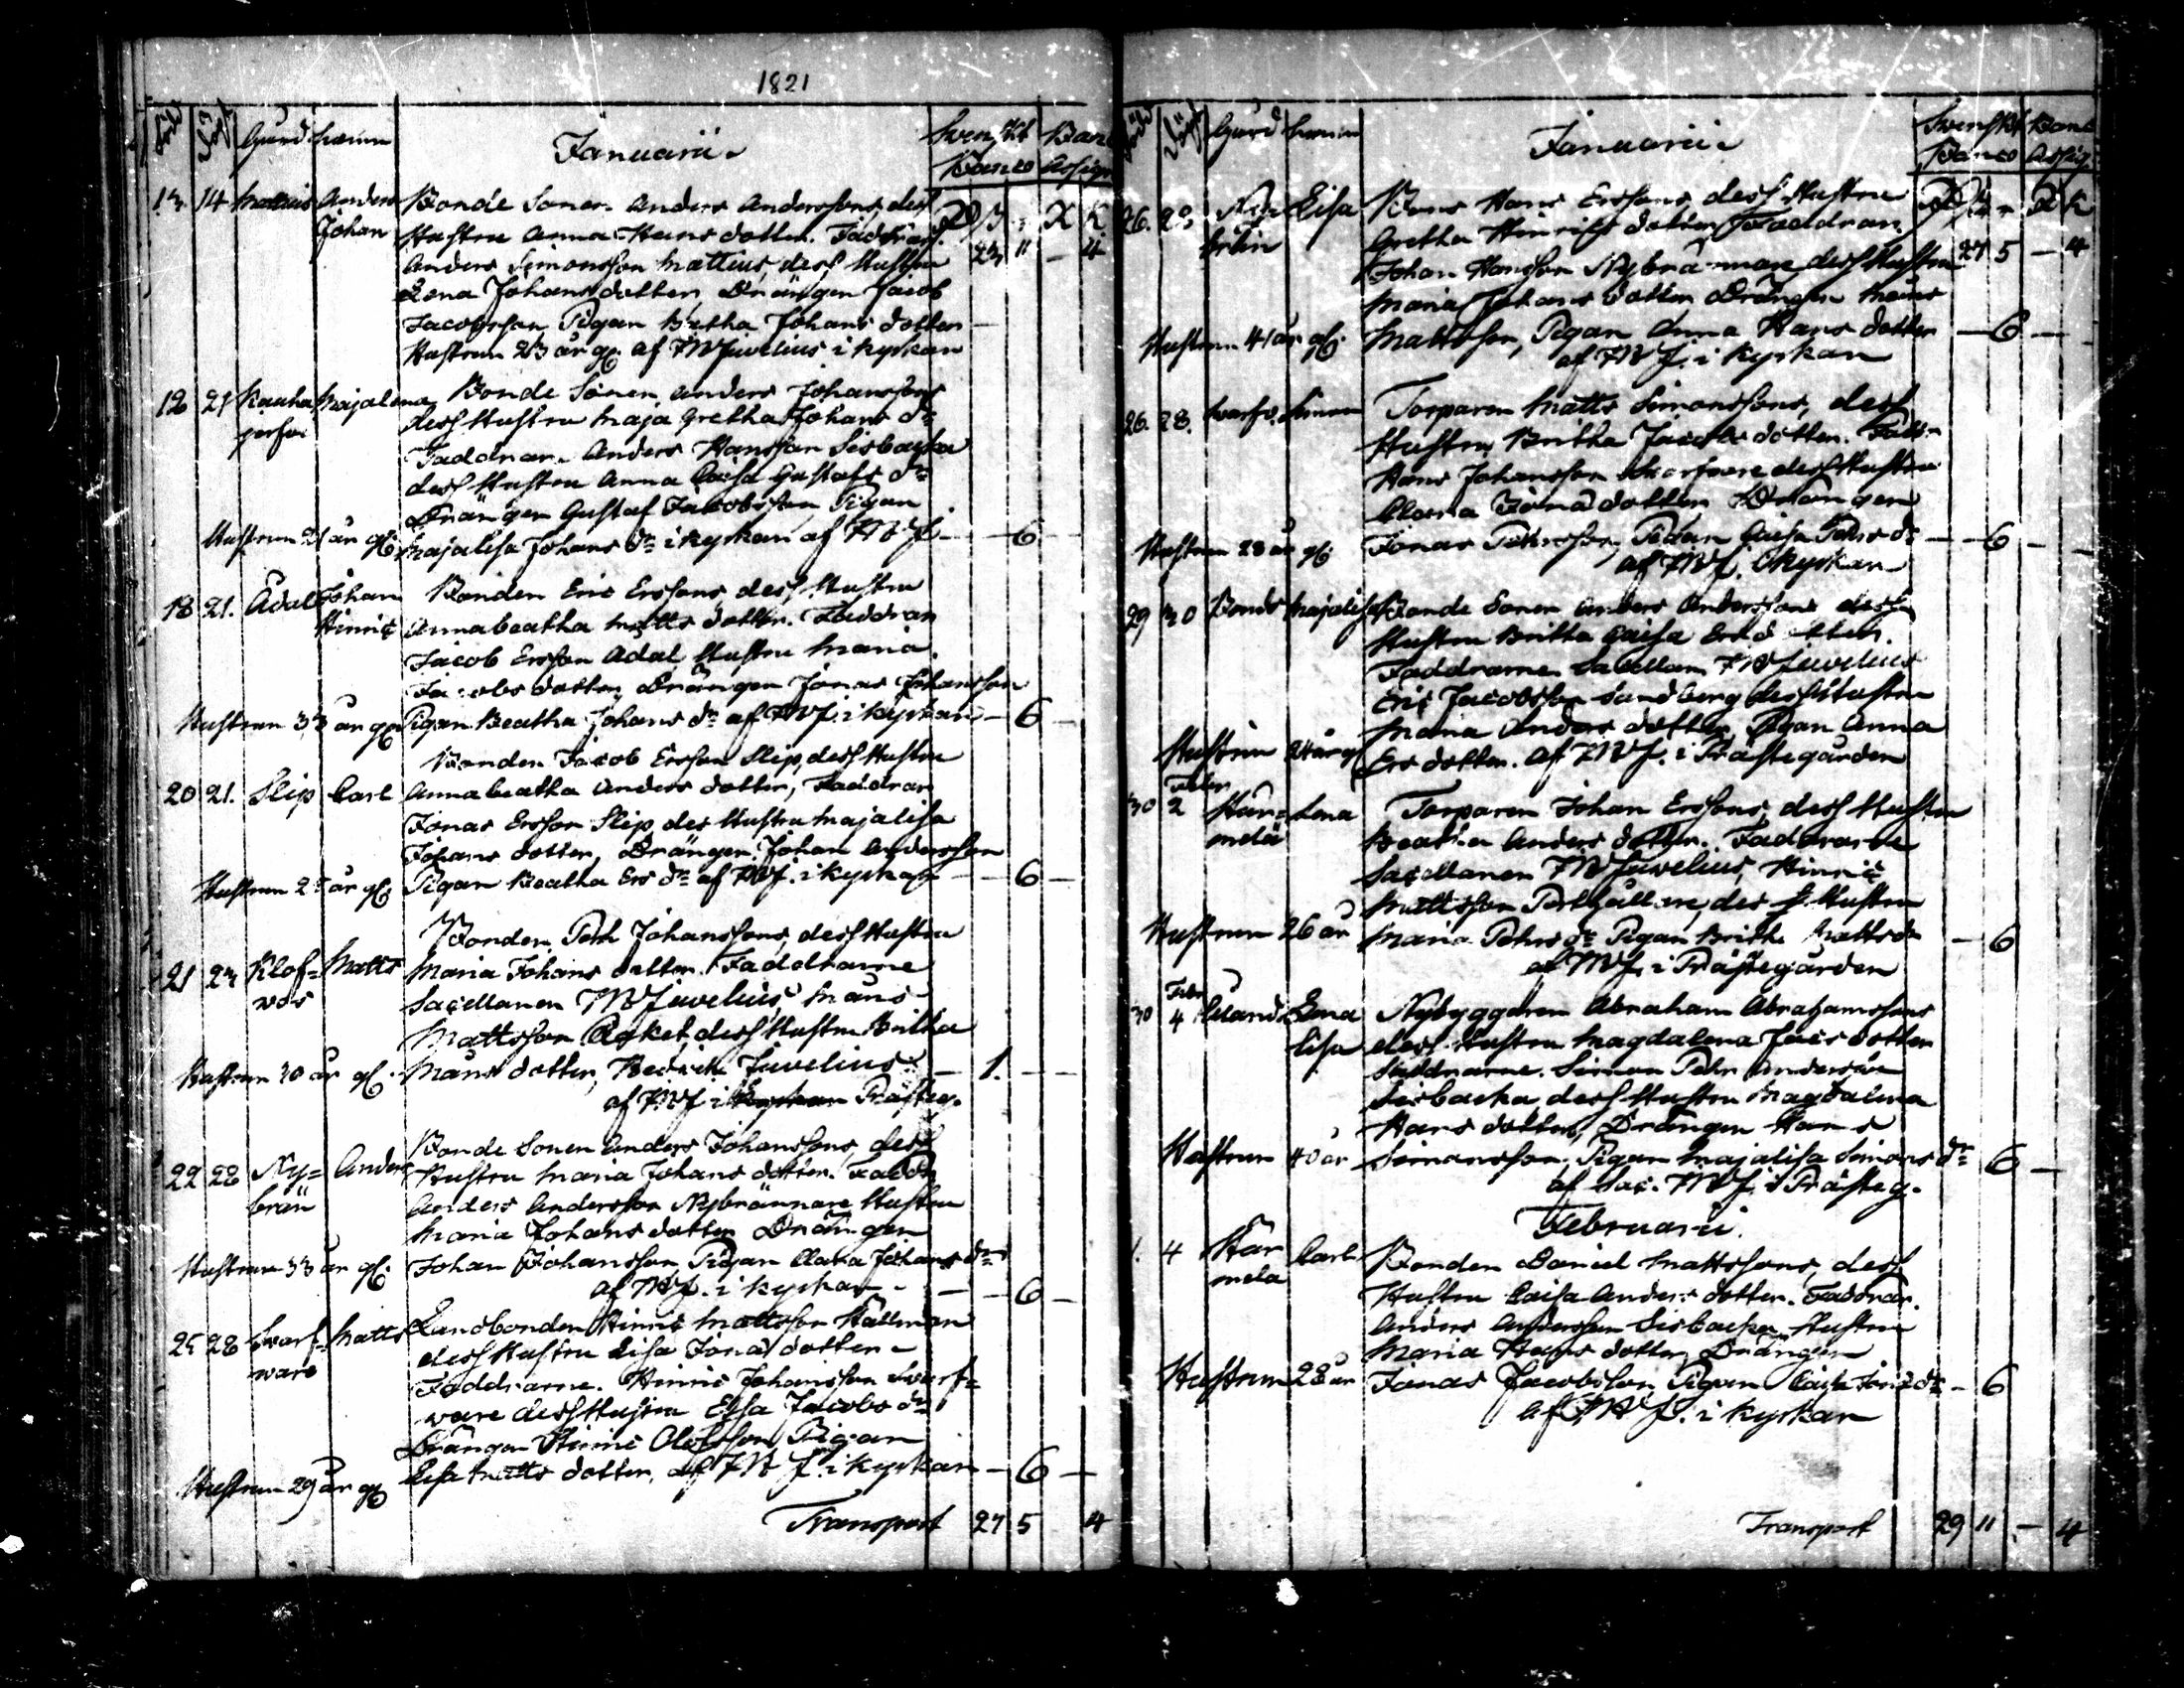 1821
Född Döpt Gård hemm Januarii. Swenskt Banco Banc Assign
13. 14 Matteus Anders Bonde Sonen Anders Anderssons, dess
Johan Hustru Anna Hansdotter. Faddrar.
Anders Simonsson Matteus, dess Hustru 23 11 - 4
Lena Johansdotter, Drängen Jacob
Jacobsson, Pigan Bretha Johans dotter
Hustrun 23 år gl. af FWJuvelius i kyrkan
Majalena Bonde Sonen Anders Johanssons
21 dess Hustru Maja Gretha Johans dr
Faddrar. Anders Hansson Sisbacka
dess Hustru Anna Caisa Gustafs dr
Drängen Gustaf Jacobsson Pigan
Hustrun 21 år gl. Majalisa Johans dr i kyrkan af FWJ - - 6 -
18 21. Ådal Johan Bonden Eric Erssons dess Hustru
Hinric Annabeatha Matts dotter. Faddrar
Jacob Ersson Ådal, Hustru Maria
Jacobs dotter, Drängen Jonas Johansson
Hustrun 33 år gl. Pigan Beatha Johans dr af FWJ. i kyrkan - 6 -
Bonden Jacob Ersson Slip, dess Hustru
20 21. Slip Carl Annabeatha Anders dotter, Faddrar
Jonas Ersson Slip, des Hustru Majalisa
Johans dotter, Drängen Johan Andersson
Hustrun år gl. Pigan Beatha Ers dr af FWJ. i kyrkan - - 6 -
Bonden Pehr Johanssons, dess Hustru
21 Klof= Matts Maria Johans dotter. Faddrarne
Sacellanen FWJuvelius, Måns
Mattsson dess Hustru Britha
Hustrun 30 år gl. Måns dotter, Juvelius - 1. -
af FWJ i Prästeg.
Bonde Sonen Anders Johanssons, dess
22 28 Ny= Anders Hustru Maria Johans dotter. Faddr
brän Anders Andersson Nybrännare Hustru
Maria Johans dotter Drängen
Hustrun 33 år gl. Johan Johansson, Pigan Clara Johans dr
af FWJ. i kyrkan - - 6 -
25 28 Swarf= Matts Landbonden Hinric Mattsson Hällman
ware dess Hustru Lisa Jonas dotter
Faddrarne. Hinric Johansson Swarf=
ware dess Hustru Elsa Jacobs dr
Drängen Hinric Olofsson, Pigan
Hustrun 29 år gl. Lisa Matts dotter, af FWJ. i kyrkan - 6 -
Transport 27 5 4
Född Döpt Gård hemm Januarii. Swenskt Banco Banc Assig.
26. 28 Ny= Elsa Bons Hans Erssons, dess Hustru
brän Gretha Hinrichs dotter, Faddrar. 27 5 - 4
Johan Hansson Nybrännare dess Hustru
Maria Johans dotter Drängen Måns
Hustrun 41 år gl. Mattsson, Pigan Anna Hans dotter - 6 -
af FWJ. i kyrkan
26. 28. Swarfv. Simon Torparen Matts Simonssons, dess
Hustru Britha Jacobs dotter. Faddr
Hans Johansson Swarfvare dess Hustru
Clara Jonas dotter Drängen
Hustrun 28 år gl. Jonas Pehrsson, Pigan Caisa Pehrs dr - - 6 -
af FWJ. i kyrkan
29 30 Bonds Majalisa Bonde Sonen Anders Anderssons dess
Hustru Britta Caisa Ersdotter.
Faddrarne Sacellan FWJuvelius
Eric Jacobsson Sandberg dess Hustru
Maria Anders dotter, Pigan Anna
Hustrun 24 år gl. Ers dotter. af FWJ. i Prästegården
Febr
30 2 Här= Lena Torparen Johan Erssons, dess Hustru
mälä Beatha Anders dotter. Faddrarne
Sacellanen FWJuvelius, Hinric
Mattsson dess Hustru
Hustrun 26 år Maria Pehrs dr Pigan Brith Matts dr - 6
af FWJ. i Prästegården
Febr
30 4 Lena Nybyggaren Abraham Abrahamssons
Lisa dess Hustru Magdalena dotter
Faddrarne. Simon Pehr Andersson
Sisbacka dess Hustru Magdalena
Hans dotter, Drängen Hans
Hustrun 40 år Simonsson, Pigan Majalisa Simons dr 6 -
af Sac. FWJ. i Prästeg.
Februarii.
1. 4 Här Carl Bonden Daniel Mattssons, dess
mälä Hustru Caisa Anders dotter. Faddrar.
Anders Andersson Sisbacka Hustru
Maria Hans dotter, Drängen
Hustrun 28 år Jonas Jacobsson Pigan Caisa Jonas dr - 6
af FWJ. i kyrkan
Transport 29 11 - 4